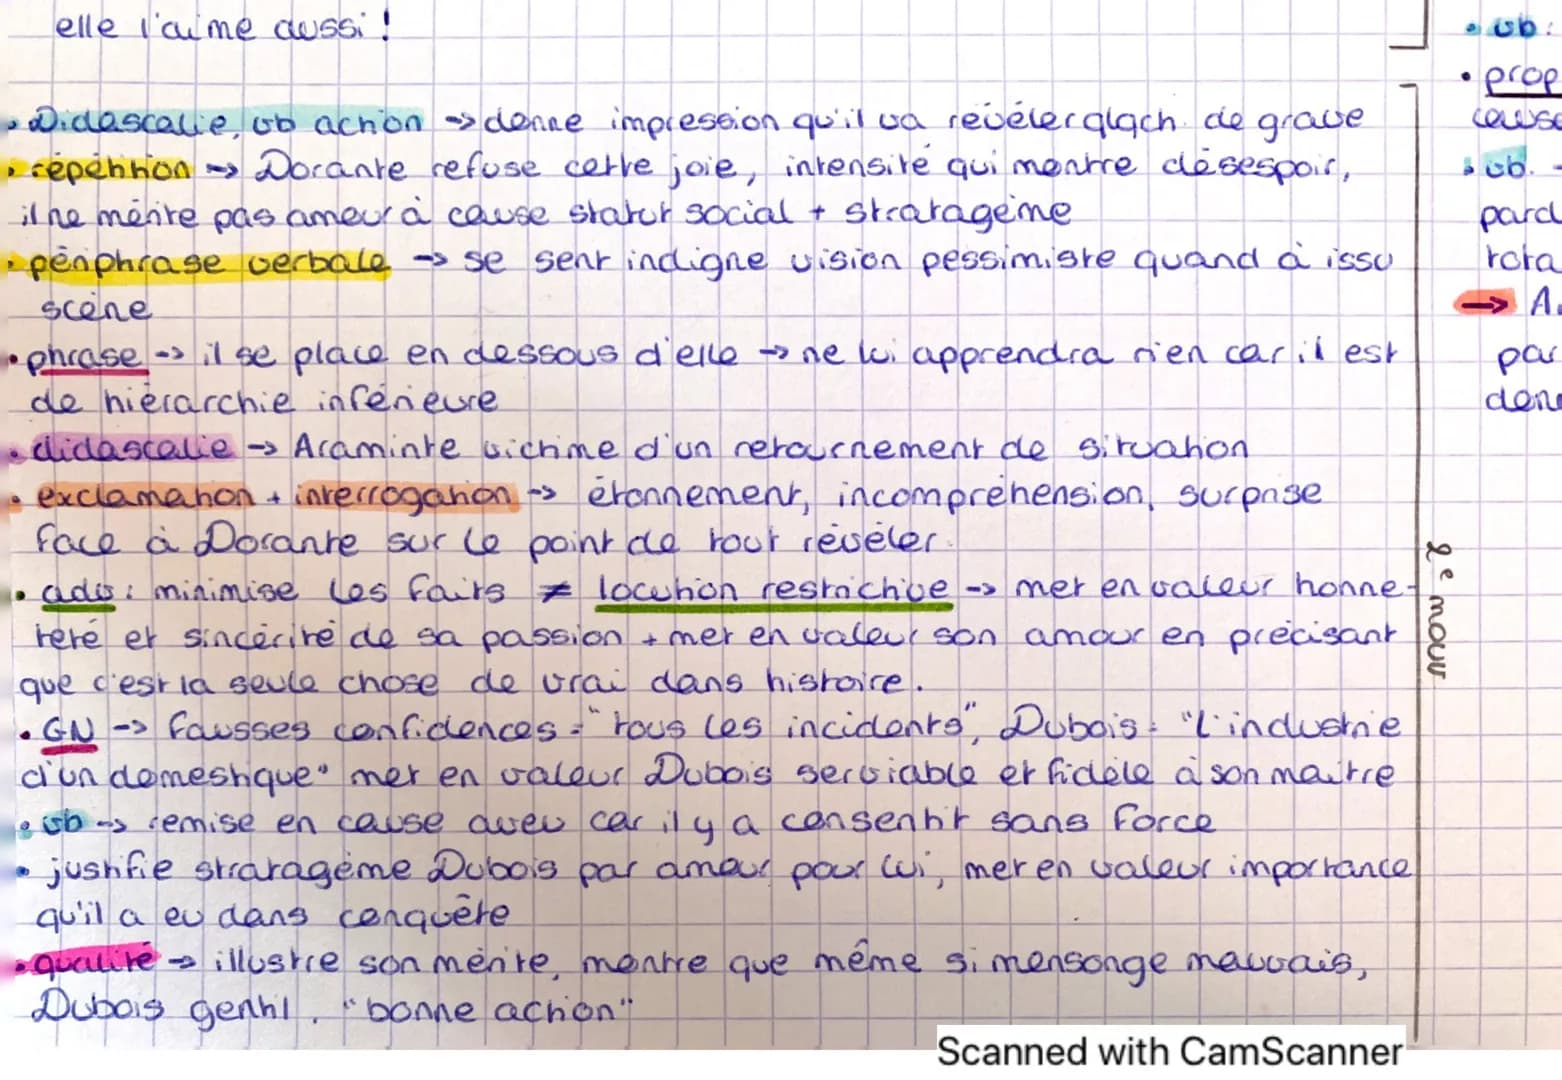 elle l'aime aussi !
• Didascalie, vb action -> donne impression qu'il va révéler qlqch. de grave
• répétition -> Dorante refuse cette joie, intensité qui montre désespoir,
il ne mérite pas amour à cause statut social + stratagème
• périphrase verbale -> se sent indigne vision pessimiste quand à issu
scène
• phrase -> il se place en dessous d'elle -> ne lui apprendra rien car il est
de hiérarchie inférieure
• didascalie -> Araminte victime d'un retournement de situation
• exclamation + interrogation -> étonnement, incompréhension, surprise
face à Dorante sur le point de tout révéler.
• adv : minimise les faits ≠ locution restrictive -> met en valeur honne-
teté et sincérité de sa passion + met en valeur son amour en précisant
que c'est la seule chose de vrai dans histoire.
• GN -> fausses confidences = "tous les incidents", Dubois = "l'industrie
d'un domestique" met en valeur Dubois serviable et fidèle à son maître
• vb -> remise en cause aveu car il y a consentit sans force
• justifie stratagème Dubois par amour pour lui, met en valeur importance
qu'il a eu dans conquête
• qualité -> illustre son mérite, montre que même si mensonge mauvais,
Dubois gentil. "bonne action"
2e mouv
• vb :
• prop
cause
• vb. -
pard
tota
-> A
par
donn
Scanned with CamScanner